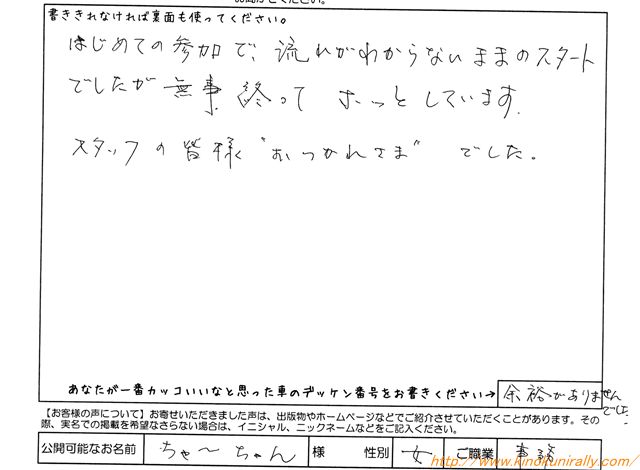 書ききれなければ裏面も使ってください。
はじめての参加で、流れがわからないままのスタート
でしたが無事終ってほっとしています。
スタッフの皆様 "おつかれさま" でした。
あなたが一番カッコいいなと思った車のデッケン番号をお書きください→ 余裕がありません
でした
【お客様の声について】お寄せいただきました声は、出版物やホームページなどでご紹介させていただくことがあります。その
際、実名での掲載を希望なさらない場合は、イニシャル、ニックネームなどをご記入ください。
公開可能なお名前 ちゃ〜ちゃん 様 性別 女 ご職業 事務
http://www.kinokunirally.com/